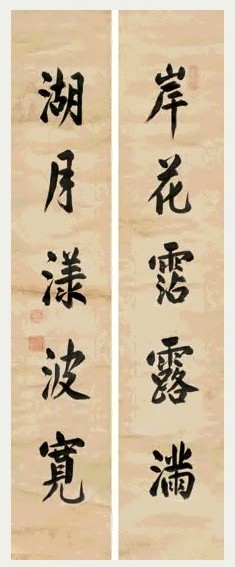 岸花霑露滿
湖月漾波寬